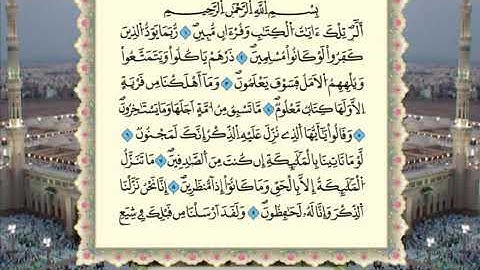 بِسْمِ اللَّهِ الرَّحْمَٰنِ الرَّحِيمِ
أَلَٓرَ تِلْكَ ءَايَٰتُ الْكِتَٰبِ وَقُرْءَانٖ مُّبِينٖ ١ رُّبَمَا يَوَدُّ الذِينَ
كَفَرُواْ لَوْ كَانُواْ مُسْلِمِينَ ٢ ذَرْهُمْ يَاكُلُواْ وَيَتَمَتَّعُواْ
وَيُلْهِهِمُ الْأَمَلُ فَسَوْفَ يَعْلَمُونَ ٣ وَمَا أَهْلَكْنَا مِن قَرْيَةٍ
اِلَّا وَلَهَا كِتَابٞ مَّعْلُومٞ ٤ مَّا تَسْبِقُ مِنُ امَّةٍ اَجَلَهَا وَمَا يَسْتَٰخِرُونَ
٥ وَقَالُواْ يَٰأَيُّهَا الذِے نُزِّلَ عَلَيْهِ الذِّكْرُ إِنَّكَ لَمَجْنُونٞ ٦
لَّوْ مَا تَاتِينَا بِالْمَلَٰٓئِكَةِ إِن كُنتَ مِنَ الصَّٰدِقِينَ ٧ مَا تَنَزَّلُ
الْمَلَٰٓئِكَةُ إِلَّا بِالْحَقِّ وَمَا كَانُواْ إِذاٗ مُّنظَرِينَ ٨ إِنَّا نَحْنُ نَزَّلْنَا
الذِّكْرَ وَإِنَّا لَهُۥ لَحَٰفِظُونَ ٩ وَلَقَدَ اَرْسَلْنَا مِن قَبْلِكَ فِے شِيَعِ